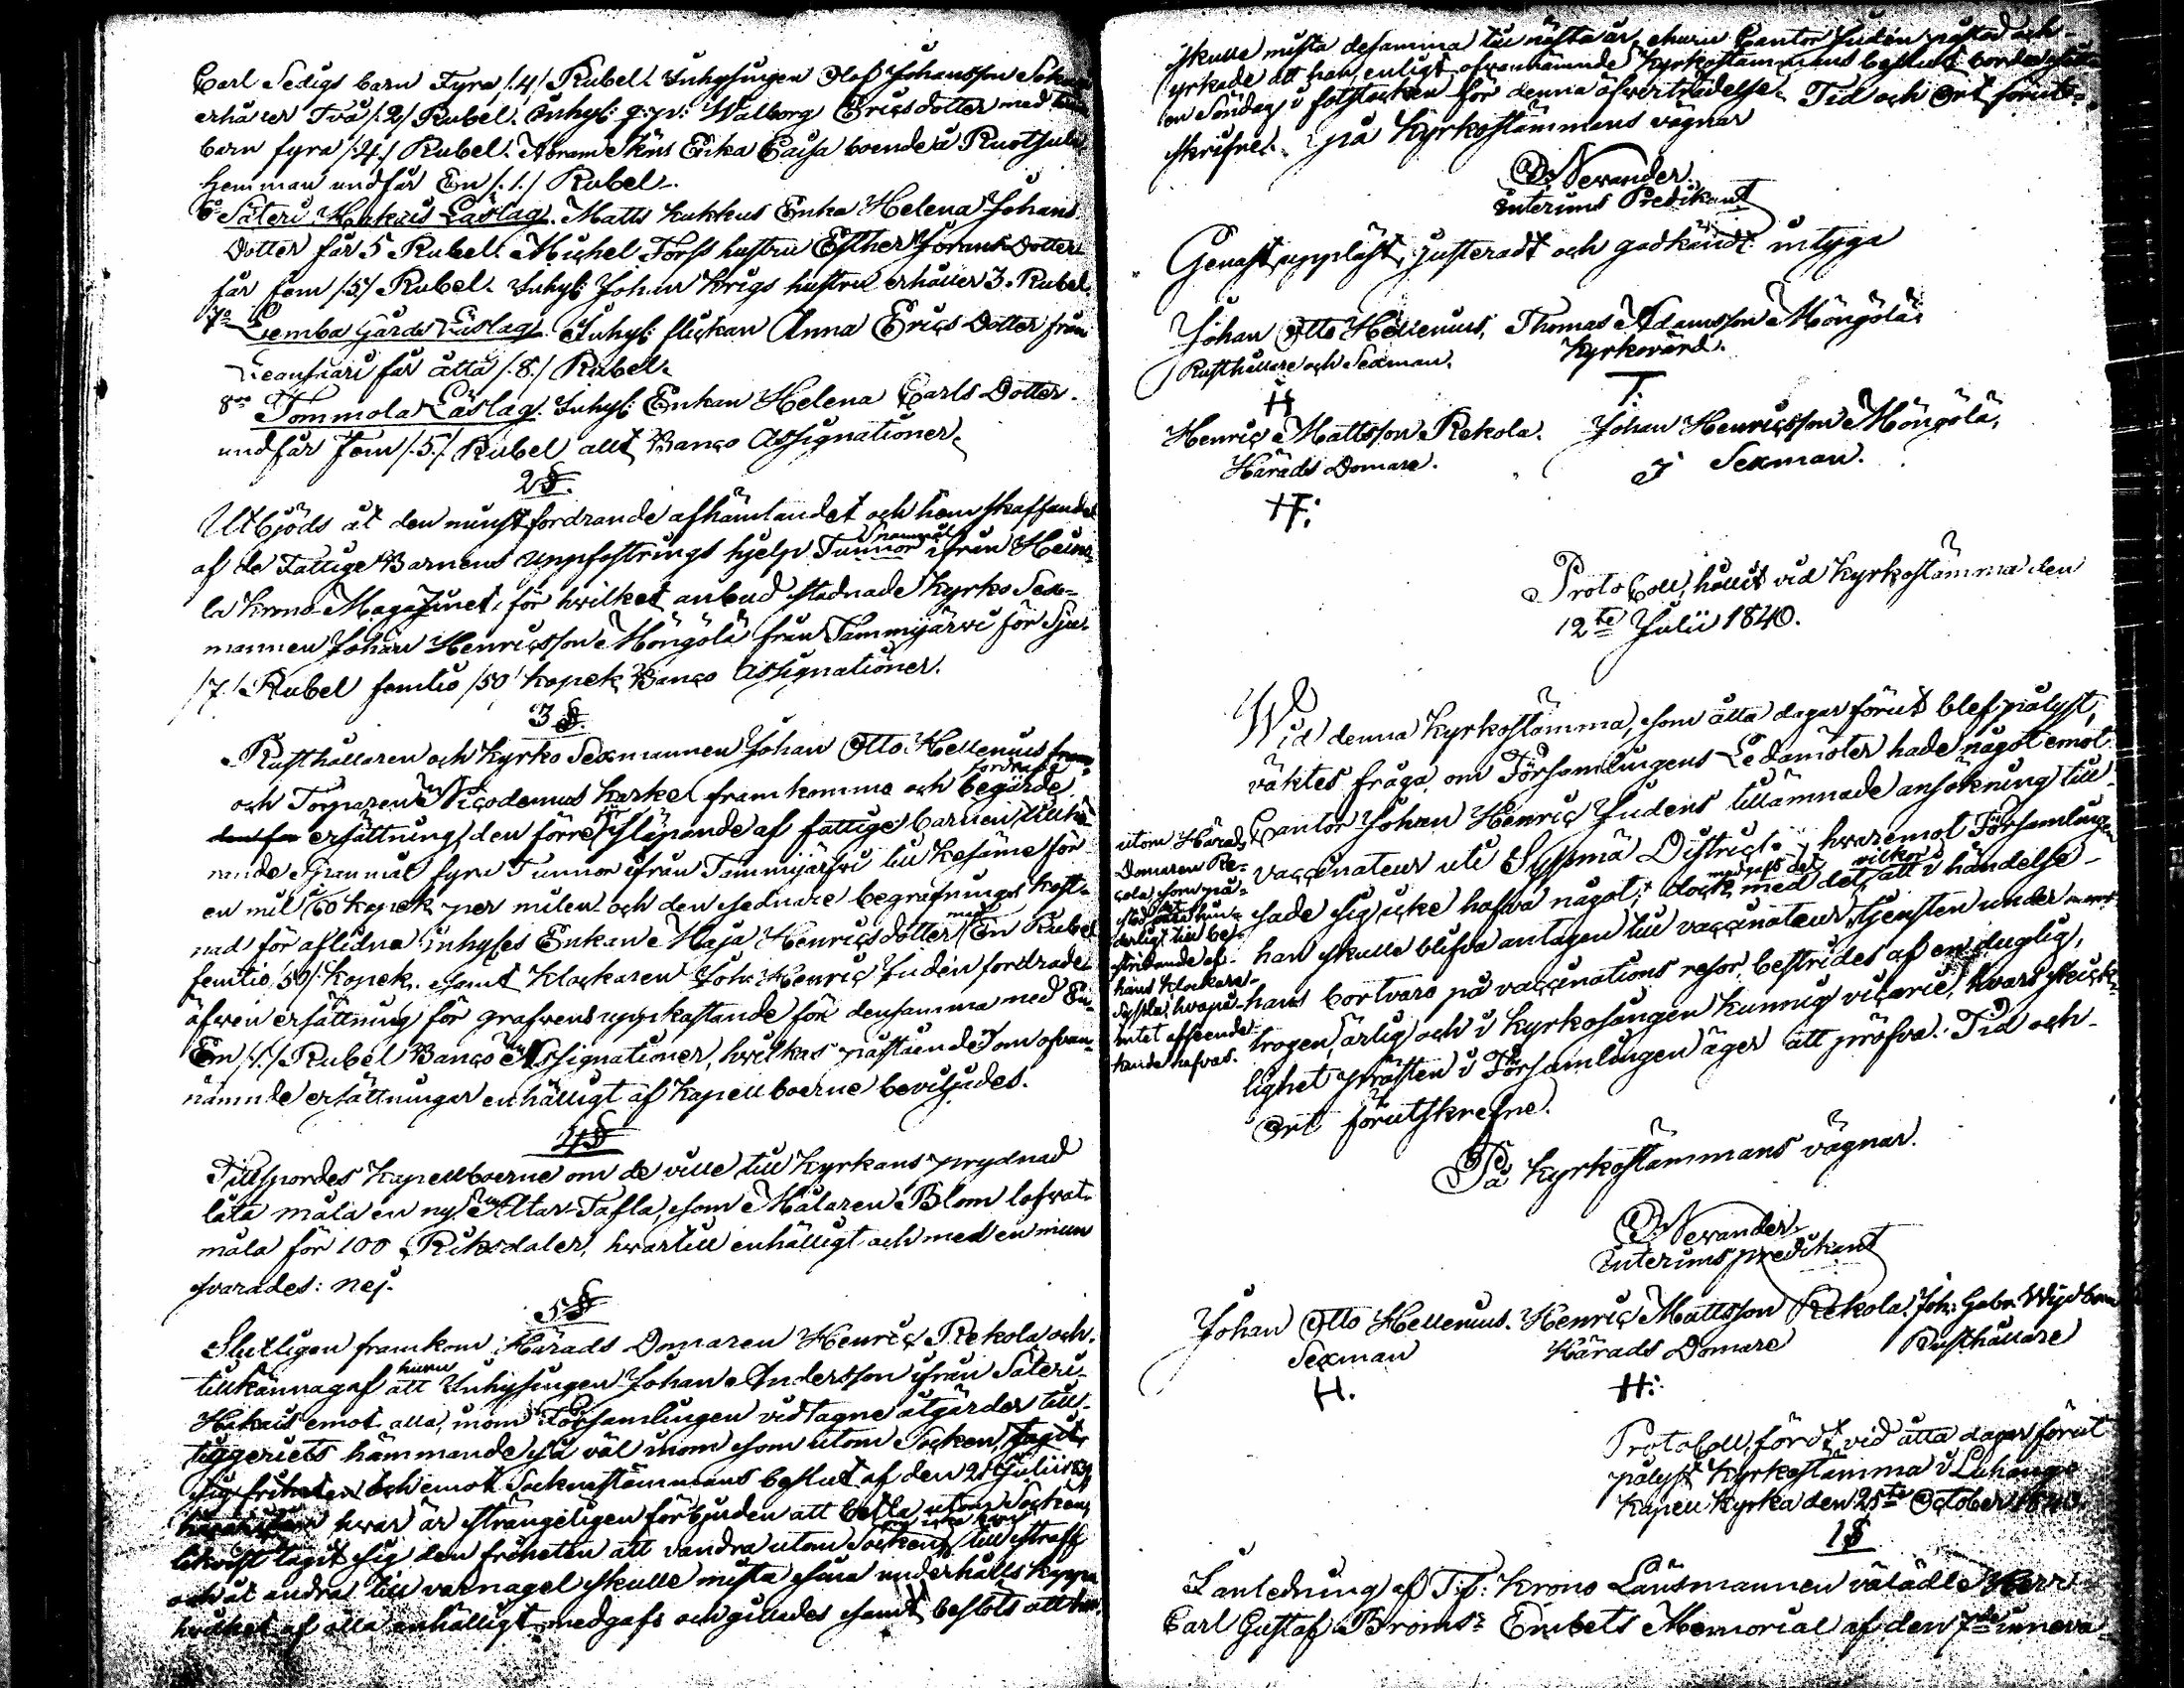 Carl Sedigs barn Fyra /.4/ Rubel. Inhysingen Olof Johansson
erhåller Två /.2/ Rubel. Inhys: q:p: Walborg Ericsdotter med
barn fyra /.4./ Rubel. Abram Enka Caisa boende å
Hemman undfår En /.1./ Rubel.
6o Säteri Hakais Läslag. Matts Kukkus Enka Helena Johans
Dotter får 5 Rubel. Michel Förss hustru Esther Dotter
får fem /5/ Rubel. Inhys: Johan Krigs hustru erhåller 3. Rubel.
7o Läslag. Inhys: flickan Anna Erics Dotter från
får åtta /.8./ Rubel.
8o Tommola Läslag. Inhys: Enkan Helena Carls Dotter
undfår Fem /.5./ Rubel allt Banco Assignationer.
2§.
Utbjöds åt den minstfordrande afhämtandet och hemskaffandet
af de Fattige Barnens uppfostrings hjelp Tunnor Spannmål ifrån Hein-
la Krono-Magazinet, för hvilket anbud stadnade Kyrko Sex-
mannen Johan Henricsson Möngölä från Tammijärvi för Sju
/7./ Rubel femtio /50/ kopek Banco Assignationer.
3§.
Rusthållaren och Kyrko Sexmannen Johan Otto Hellenius
och Torparen Nicodemus Karke framkommo och begärde
ersättning, den förre för släpande af fattige barnen
Spannmål fyra Tunnor ifrån Tammijärfvi till Kesäme för
en mil 60 kopek per milen och den sednare begrafnings kost-
nad för aflidna inhyses Enkan Maja Henricsdotter med En Rubel
femtio /50/ kopek samt Klockaren Joh: Henric Judén fordrade
äfven ersättning för grafvens uppkastande för densamma med En
En /.1./ Rubel Banco Assignationer, hvilkas påstående om ofvan-
nämnde ersättningar enhälligt af Kapellboerne beviljades.
4§
Tillspordes Kapellboerne om de ville till Kyrkans prydnad
låta måla en ny Altar-Tafla, som Målaren Blom lofvat
måla för 100 Riksdaler, hvartill enhälligt och med en mun
svarades: nej.
5§
Slutligen framkom Härads Domaren Henric Rekola och
tillkännagaf huru att Inhysingen Johan Andersson ifrån Säteri
Hakais emot alla, inom Församlingen vidtagne åtgärder till
tiggeriets hämmande så väl inom som utom Socken, tagit
sig friheten och emot Sockenstämmans beslut af den 21 Julii
hvar är strängeligen förbjuden att betla utom Socken,
likväl tagit sig den friheten att vandra utom Socken till straff
och åt andra till varnagel skulle mista sina underhålls
hvilket af alla enhälligt medgafs och gillades samt beslöts att han
skulle mista desamma till nästa år, churu Cantor Judén påstod och
yrkade att han, enligt ofvannämnde Kyrkostämmans beslut borde
en Söndag i fotstocken för denna öfverträdelse. Tid och Ort förut-
skrifne. på Kyrkostämmans vägnar
Nevander.
Interims Predikant
Genast uppläst, justeradt och godkändt intyga
Johan Otto Hellenius, Thomas Adamsson Möngölä,
Rusthållare och Sexman. Kyrkovärd.
H T:
Henric Mattsson Rekola. Johan Henricsson Möngölä,
Härads Domare. J Sexman.
H:
ProtoColl, hållit vid Kyrkostämma den
12te Julii 1840.
Wid denna Kyrkostämma, som åtta dagar förut blef pålyst,
väktes fråga, om Församlingens Ledamöter hade något emot
Cantor Johan Henric Judéns tillämnade ansökning till
vaccinateur uti Sysmä District: hvaremot Församlingen
sade sig icke hafva något; dock medgafs det med det vilkor att i händelse
han skulle blifva antagen till vaccinateur, tjensten under
hans bortvaro på vaccinations resor, bestrides af en duglig,
trogen, ärlig och i Kyrkosången kunnig vicarie, hvars skick-
lighet prästen i Församlingen äger att pröfva. Tid och
Ort förutskrefne.
utom Härads
Domaren Re-
cola som på-
stod
derligt till be-
stridande af
hans Klockare-
Syssla, hvarpå
intet afseende
kunde hafvas.
På Kyrkostämmans vägnar.
Nevander.
Interims predikant
Johan Otto Hellenius. Henric Mattsson Rekola. Joh: Gabr: Wydbom
Sexman Härads Domare Rusthållare
H. H:
ProtoColl, fördt vid åtta dagar förut
pålyst Kyrkostämma i Luhango
Kapell Kyrka den 25te October 1840.
1§
I anledning af Tit: Krono Länsmannen välädle Herr
Carl Gustaf Broms Embets Memorial af den 7de inneva-